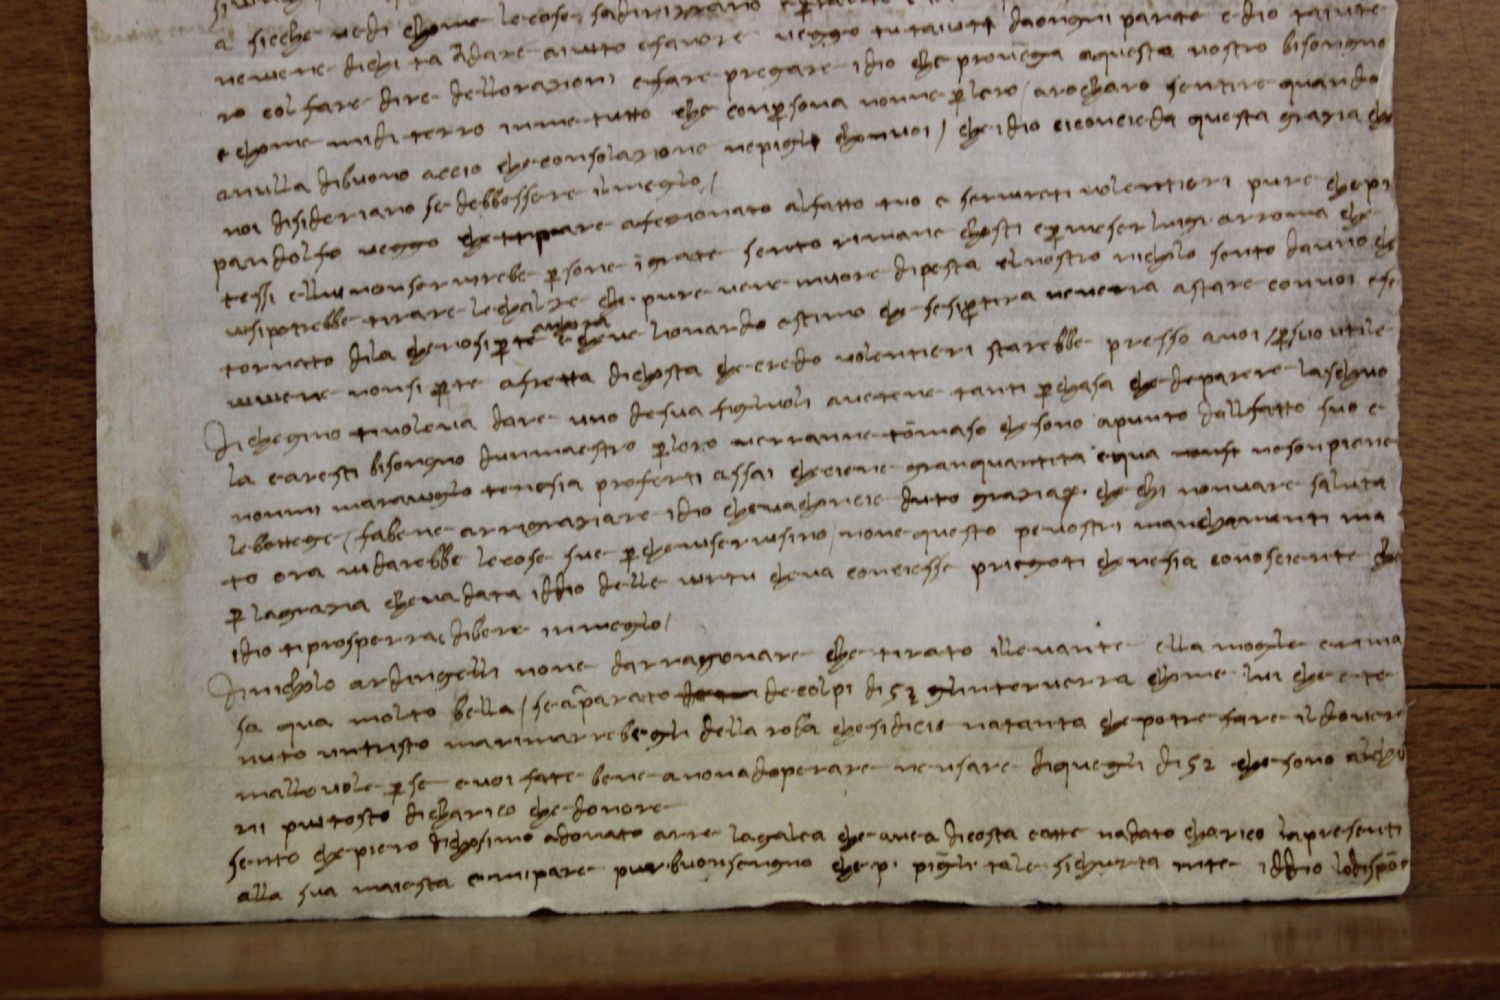 a sicche vedi chome le cose sadirizzano
nevere dichi ta a dare aiutto e favore veggo tutaiutt da ongni parte e dio taiute
ro col fare dire dellorazioni e fare pregare idio che provega a questo nostro bisongno
e chome midi terro in me tutto che conpsona nonne p loro / aro charo sentire quando
a nulla di buono accio che consolazione ne pigli chonvoi / che idio ci concieda questa grazia che
noi disideriano se debbessere il meglo /
pandolfo veggo are afezionato al fatto tuo e servireti volentieri pure che pi
tessi e llui non servirebe psone igrate sento rimane chosti e p meser luigi a rroma che
visi potrebbe tirare le chalze che pure vene muore di pesta el nostro nicholo sento davino che
tornato di la che no si parte anchora e cheve lionardo estimo che se si partira neverra a stare con voi e se
vivere non si parte a fretta di chosta che credo volentieri starebbe presso a voi / p suo utile
Di chegino ti voleva dare uno de sua figlivoli avetene tanti p chasa che de parere la schuo
la e aresti bisongno dun maestro p loro verranne tomaso che sono apunto dal fatto suo e
nonmi maraviglo te ne sia proferti assai che ciene gran quantita e qua no son piene
le bottege / fa bene a rrigraziare idio che va choncie duto grazia p che chi non vare saluta
to ora vi darebbe le cose sue p che vi servissino / none questo pe vostri manchamenti ma
p la grazia che va data iddio delle virtu che va conciesse priegoti che ne sia conosciente che
idio ti prosperra e di bene in meglo /
Di nicholo ardingelli none da rragonare che tirato il levante e lla mogle e rima
sa qua molto bella / se a parato de colpi di 52 gli nterverra chome lui che e te
nuto un tristo mari narrebegli della roba che si dicie natanta che potre fare il dovere
mallevole p se e voi fate bene a nonadoperare ne usare di quegli di 52 che sono a lchu
ni piu tosto di charico che donore
sento che piero di chosimo a donato a rre la galea che avea di costa e atte nadato charico la presenti
alla sua maiesta e mi pare pur buon sengno che pi pigli tale sichurta in te iddio lo dispo